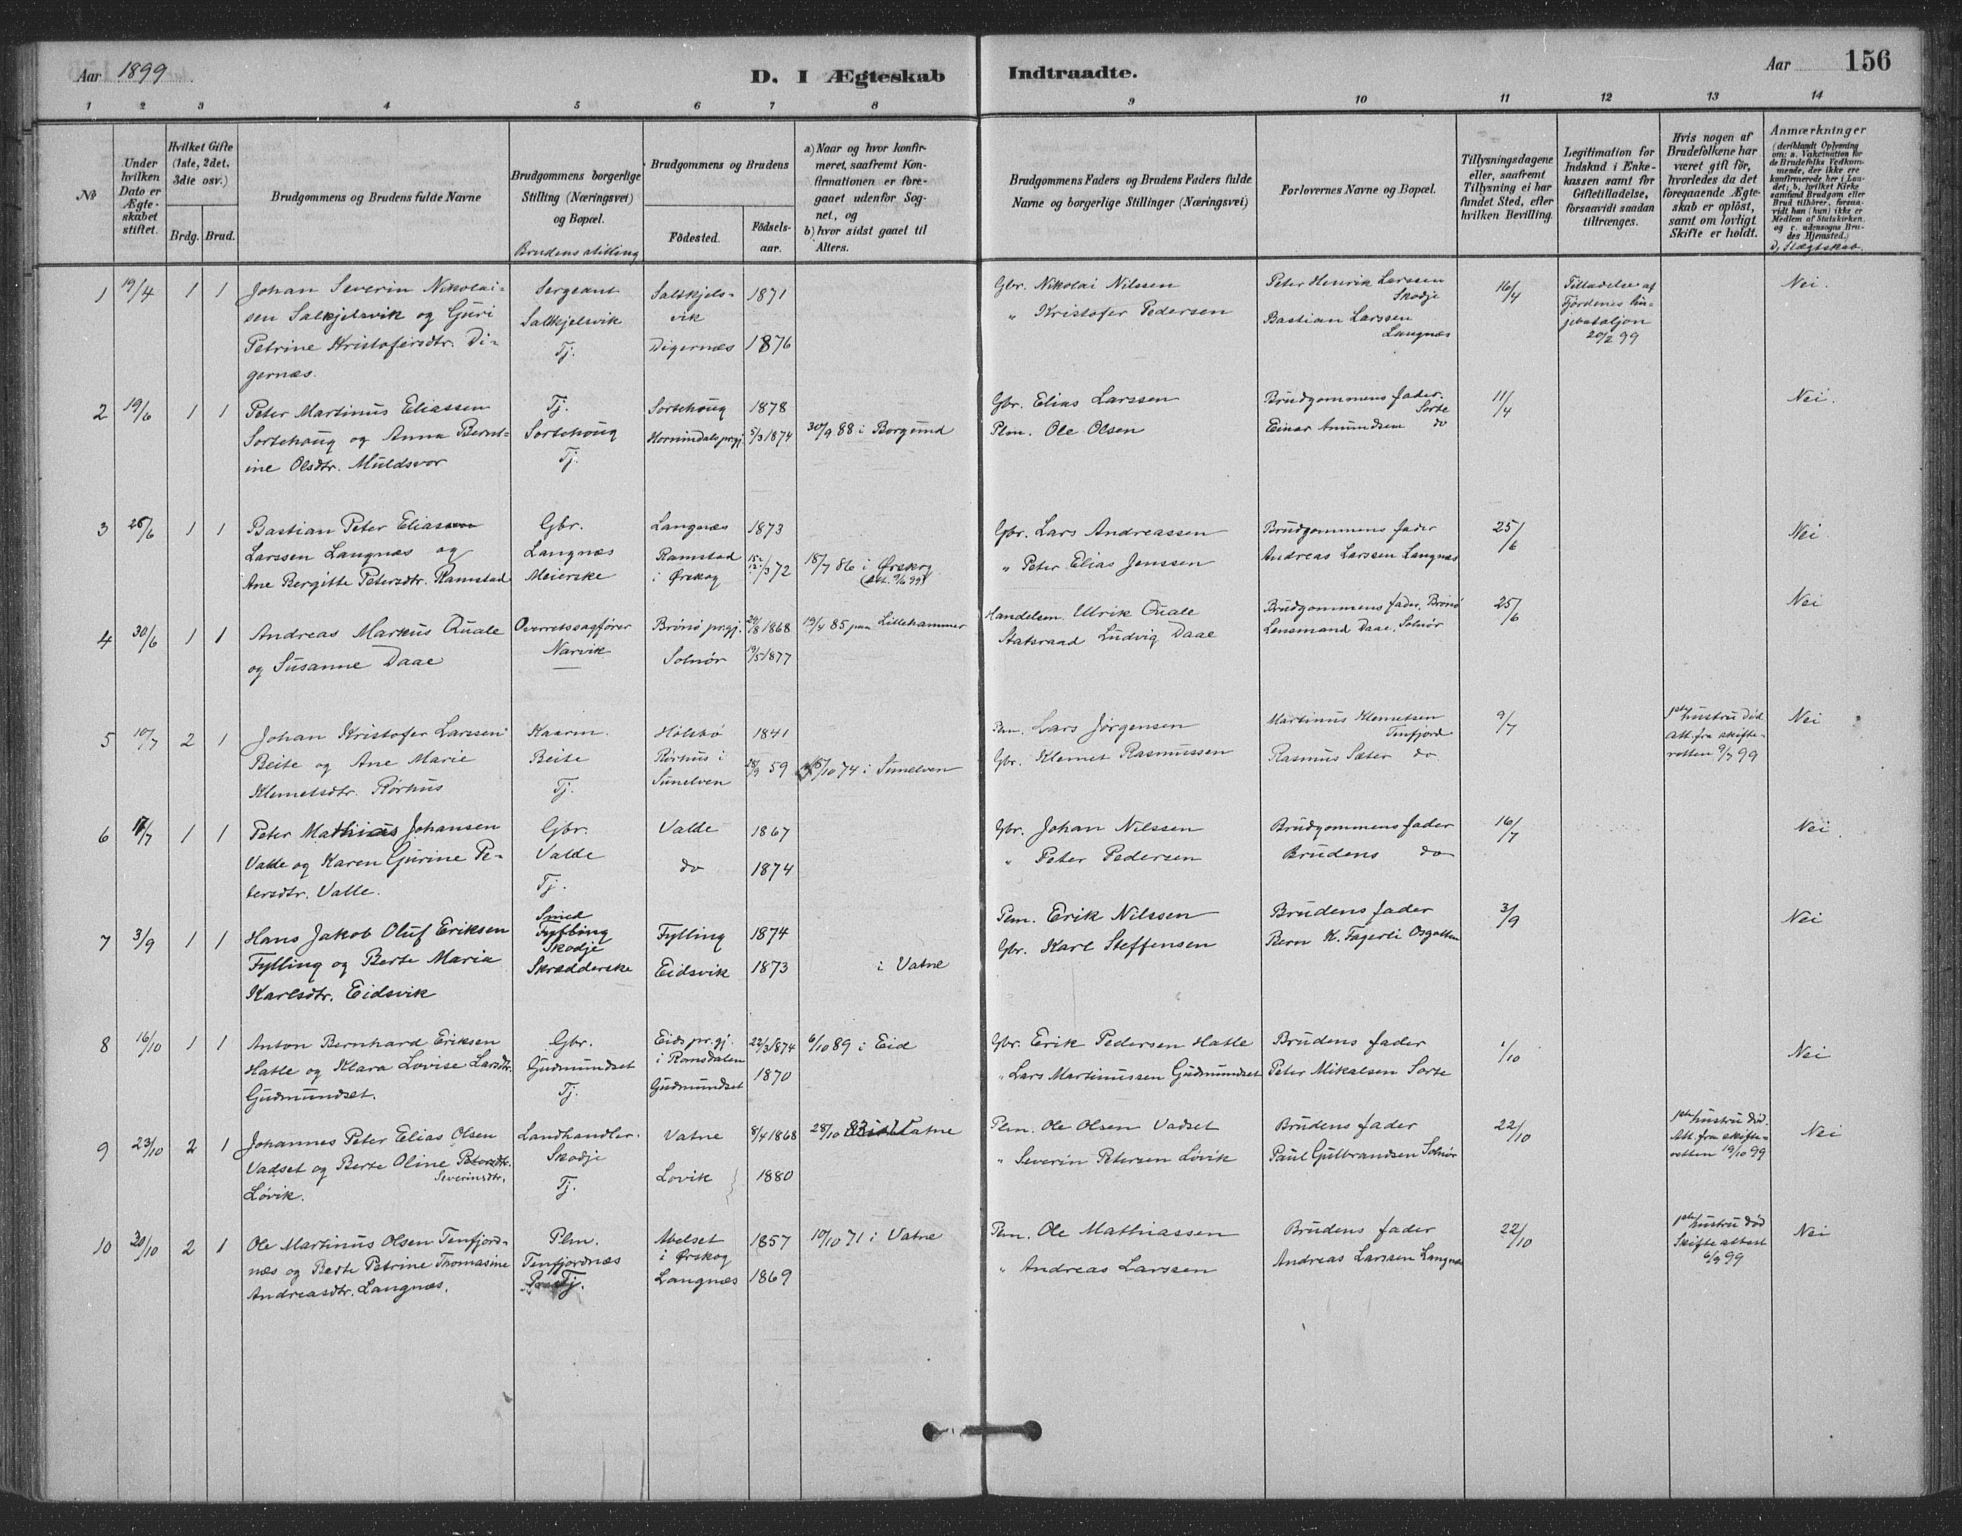 Aar 1899
D. I Ægteskab
Indtraadte.
Aar
156
1 2 3 4 5 6 7 8 9 10 11 12 13 14
No
Under hvilken Dato er Ægteskabet stiftet.
Hvilket Gifte (1ste, 2det, 3die osv.)
Brdg. Brud.
Brudgommens og Brudens fulde Navne
Brudgommens borgerlige Stilling (Næringsvei) og Bopæl.
Brudens stilling
Brudgommens og Brudens
Fødested.
Fødsels-aar.
a) Naar og hvor konfirmeret, saafremt Konfirmationen er foregaaet udenfor Sognet, og
b) hvor sidst gaaet til Alters.
Brudgommens Faders og Brudens Faders fulde Navne og borgerlige Stillinger (Næringsvei)
Forlovernes Navne og Bopæl.
Tillysningsdagene eller, saafremt Tillysning ei har fundet Sted, efter hvilken Bevilling.
Legitimation for Indskud i Enkekassen samt for Giftetilladelse, forsaavidt saadan tiltrænges.
Hvis nogen af Brudefolkene har været gift før, hvorledes da det foregaaende Ægteskab er opløst, samt om lovligt Skifte er holdt.
Anmærkninger
(deriblandt Oplysning om: a. Vakcination for de Brudefolks Vedkommende, der ikke ere konfirmerede her i Landet; b. hvilket Kirkesamfund Brudgom eller Brud tilhører, forsaavidt han (hun) ikke er Medlem af Statskirken, og c. udensogns Brudes Hjemsted.)
D, Slægtskab.
1 19/4 1 1 Johan Severin Nikolai- Sergeant Saltkjels- 1871 Gbr. Nikolai Nilssen Peter Henrik Larssen 16/4 Tilladelse af Nei.
sen Salkjelsvik og Guri Salkjelsvik vik " Kristofer Pedersen Skodje Fjordenes lin-
Petrine Kristofersdtr. Di- Tj. Digernæs 1876 Bastian Larssen jebataljon
gernæs. Langnæs 20/2 99
2 19/6 1 1 Peter Martinus Eliassen Tj. Sortehoug 1878 Gbr. Elias Larssen Brudgommens fader. 11/4 Nei.
Sortehoug og Anna Bernt- Sortehoug Hornindals prgj. 5/3 1874 30/9 88 i Borgund Plm. Ole Olsen Sorte
ine Olsdtr. Muldsvor Tj. Einar Amundsen do
3 26/6 1 1 Bastian Peter Elias Gbr. Langnæs 1873 Gbr. Lars Andreassen Brudgommens fader 25/6 Nei
Larssen Langnæs og Langnæs Ramstad 72 18/7 86 i Ørskog " Peter Elias Jenssen Andreas Larssen Langnæs
Ane Bergitte Petersdtr. Ramstad Meierske i Ørskog (Att. 9/6 99)
4 30/6 1 1 Andreas Markus Quale Overretssagfører Brönö prgj. 1868 19/4 85 paa Lillehammer Handelsm. Ulrik Quale Brudgommens fader, Brönö 25/6 Nei
og Susanne Daae Narvik Solnör 19/5 1877 Statsraad Ludvig Daae Lensmand Daae, Solnör
5 10/7 2 1 Johan Kristofer Larssen Kaarm. 1841 Pm. Lars Jørgensen Martinus Klemetsen 9/7 1ste hustru död Nei
Beite og Ane Marie Beite Rørhus i 59 /10 74 i Sunelven Gbr. Klemet Rasmussen Tenfjord Att. fra skifte-
Klemetsdtr. Rørhus Tj. Sunelven Rasmus Sæter do retten 9/7 99
6 17/7 1 1 Peter Mathias Johansen Gbr. Valde 1867 Gbr. Johan Nilssen Brudgommens fader 16/7 Nei.
Valde og Karen Gurine Pe- Valde do 1874 " Peter Pedersen Brudens do
tersdtr. Valle. Tj.
7 3/9 1 1 Hans Jakob Oluf Eriksen Smed Fylling 1874 Pm. Erik Nilssen Brudens fader 3/9 Nei
Fylling og Berte Maria Fylling Skodje Eidsvik 1873 i Vatne Gbr. Karl Steffensen Bern K. Fagerli
Karlsdtr. Eidsvik Skrædderske
8 16/10 1 1 Anton Bernhard Eriksen Gbr. Eids pr.gj. 22/3 1874 6/10 89 i Eid Gbr. Erik Pedersen Hatle Brudens fader 1/10 Nei
Hatle og Klara Lovise Larsdtr. Gudmundset i Romsdalen " Lars Martinussen Gudmundset Peter Mikalsen Sorte
Gudmundset. Tj. Gudmundset 1870
9 23/10 2 1 Johannes Peter Elias Olsen Landhandler. Vatne 8/4 1868 28/10 83 i Vatne Plm. Ole Olsen Vadset Brudens fader 22/10 1ste hustru död. Nei
Vadset og Berte Oline Petersdtr. Skodje Lovik 1880 " Severin Petersen Lövik Paul Gulbrandsen Solnör Att. fra skifte-
Severinsdtr. retten 19/10 99
Lövik. Tj.
10 30/10 2 1 Ole Martinus Olsen Tenfjord- Plm. Abelset 1857 10/10 71 i Vatne Pm. Ole Mathiassen Brudens fader 22/10 1ste hustru död Nei
næs og Berte Petrine Thomasine Tenfjordnæs i Ørskog " Andreas Larssen Andreas Larssen Langnæs Skifte attest
Andreasdtr. Langnæs. Tj. Langnæs 1869 6/9 99